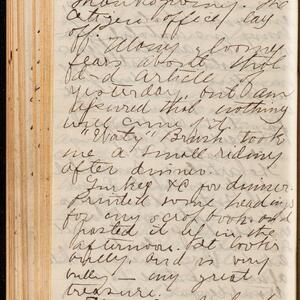 Thanksgiving. The
Citizen office lay
off. Many gloomy
fears about that
d-d article of
yesterday, but I am
assured that nothing
will come of it.
"Waty" Brush took
me a small riding
after dinner.
Turkey &C for dinner.
Printed some headings
for my scrap book and
pasted it up in the
afternoon. It looks
bully, and is very
bully — my great
treasure.